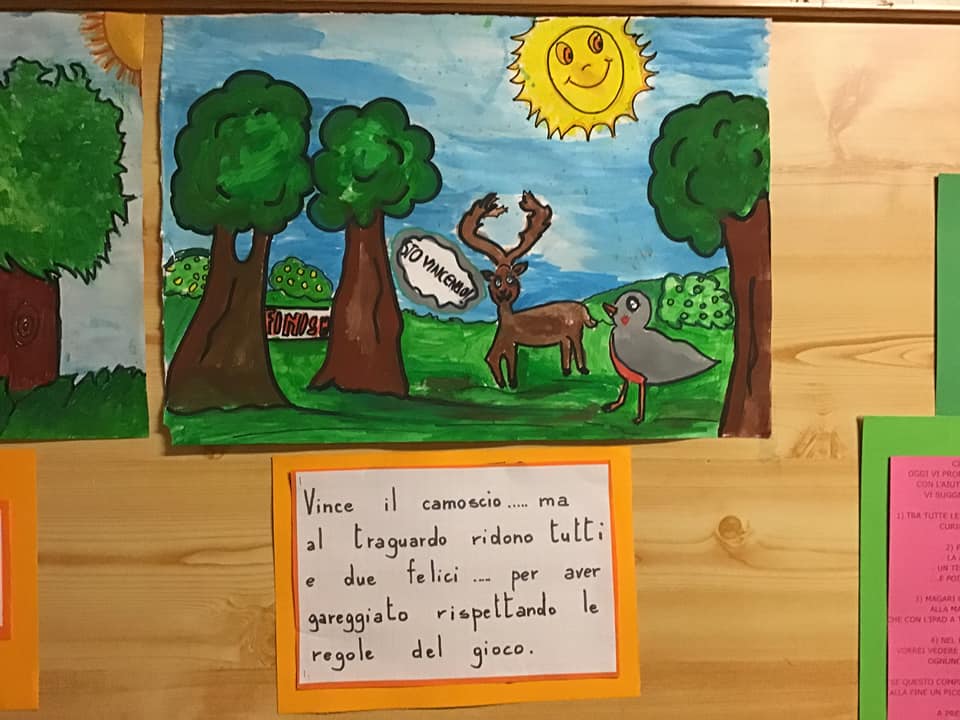 STO VINCENDO!
Vince il camoscio..... ma
al traguardo ridono tutti
e due felici .... per aver
gareggiato rispettando le
regole del gioco.
OGGI VI PRO
CON L'AIUT
VI SUGG
1) TRA TUTTE LE
CURI
2) F
LA
UN TE
3) MAGARI
ALLA MA
CHE CON L'IPAD A
4) NEL
VORREI VEDERE
OGNUNO
SE QUESTO COMP
ALLA FINE UN PIC
A PRE